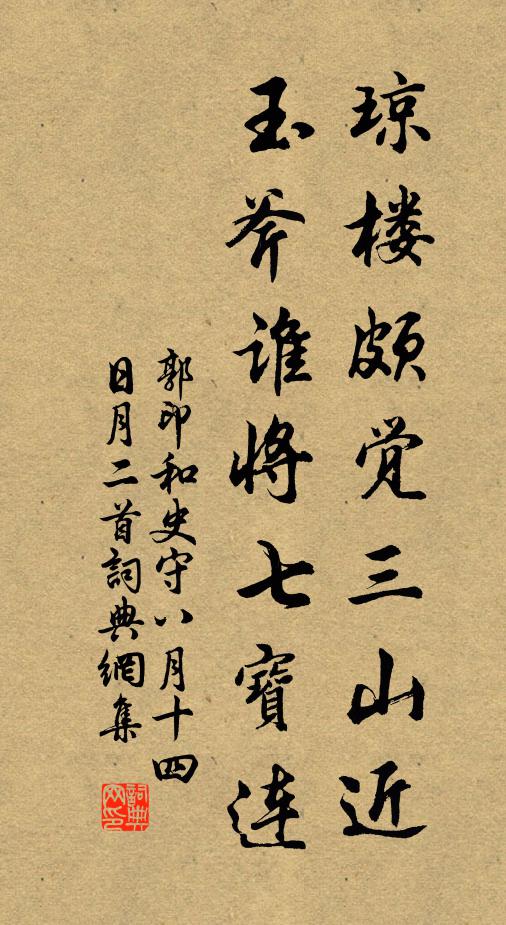 琼楼颇觉三山近
玉斧谁将七寶连
郭印和史守八月十四
日月二首詞典網集
詞典
网印